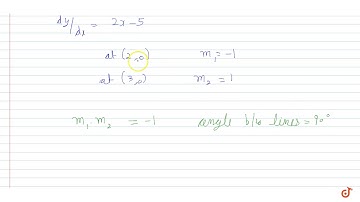 dy/dx = 2x-5
at (2,0) m₁ = -1
at (3,0) m₂ = 1
m₁ . m₂ = -1 angle b/w lines = 90°